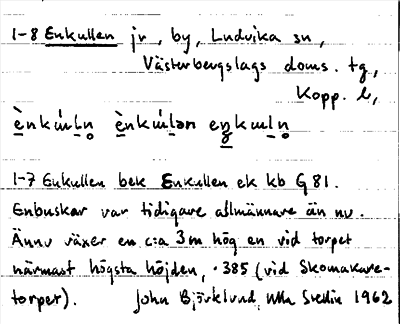 1-8 Enkullen jr, by, Ludvika sn,
Västerbergslags doms. tg,
Kopp. l,
1-7 Enkullen bek Enkullen ek kb G 81.
Enbuskar var tidigare allmännare än nu.
Ännu växer en c:a 3 m hög en vid torpet
närmast högsta höjden, ·385 (vid Skomakare-
torpet). John Björklund, Ulla Svedin 1962